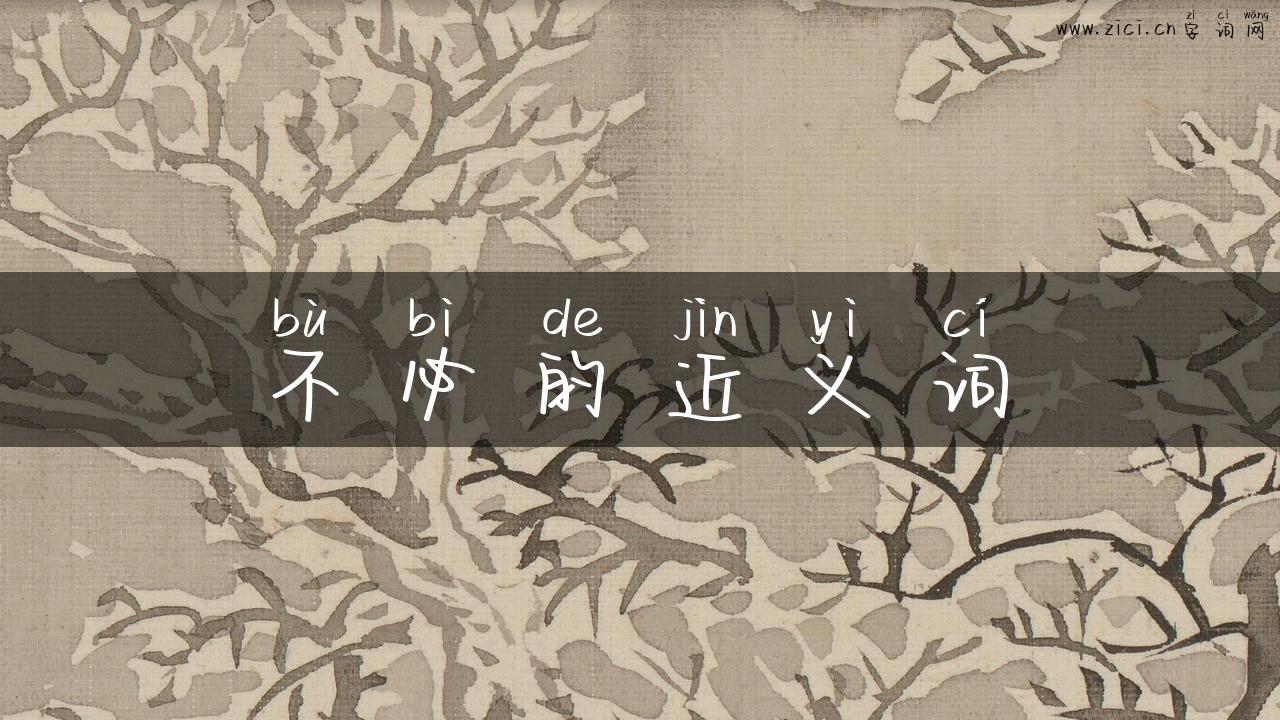 zì cí wǎng
www.zici.cn 字 词 网
bù bì de jìn yì cí
不 必 的 近 义 词